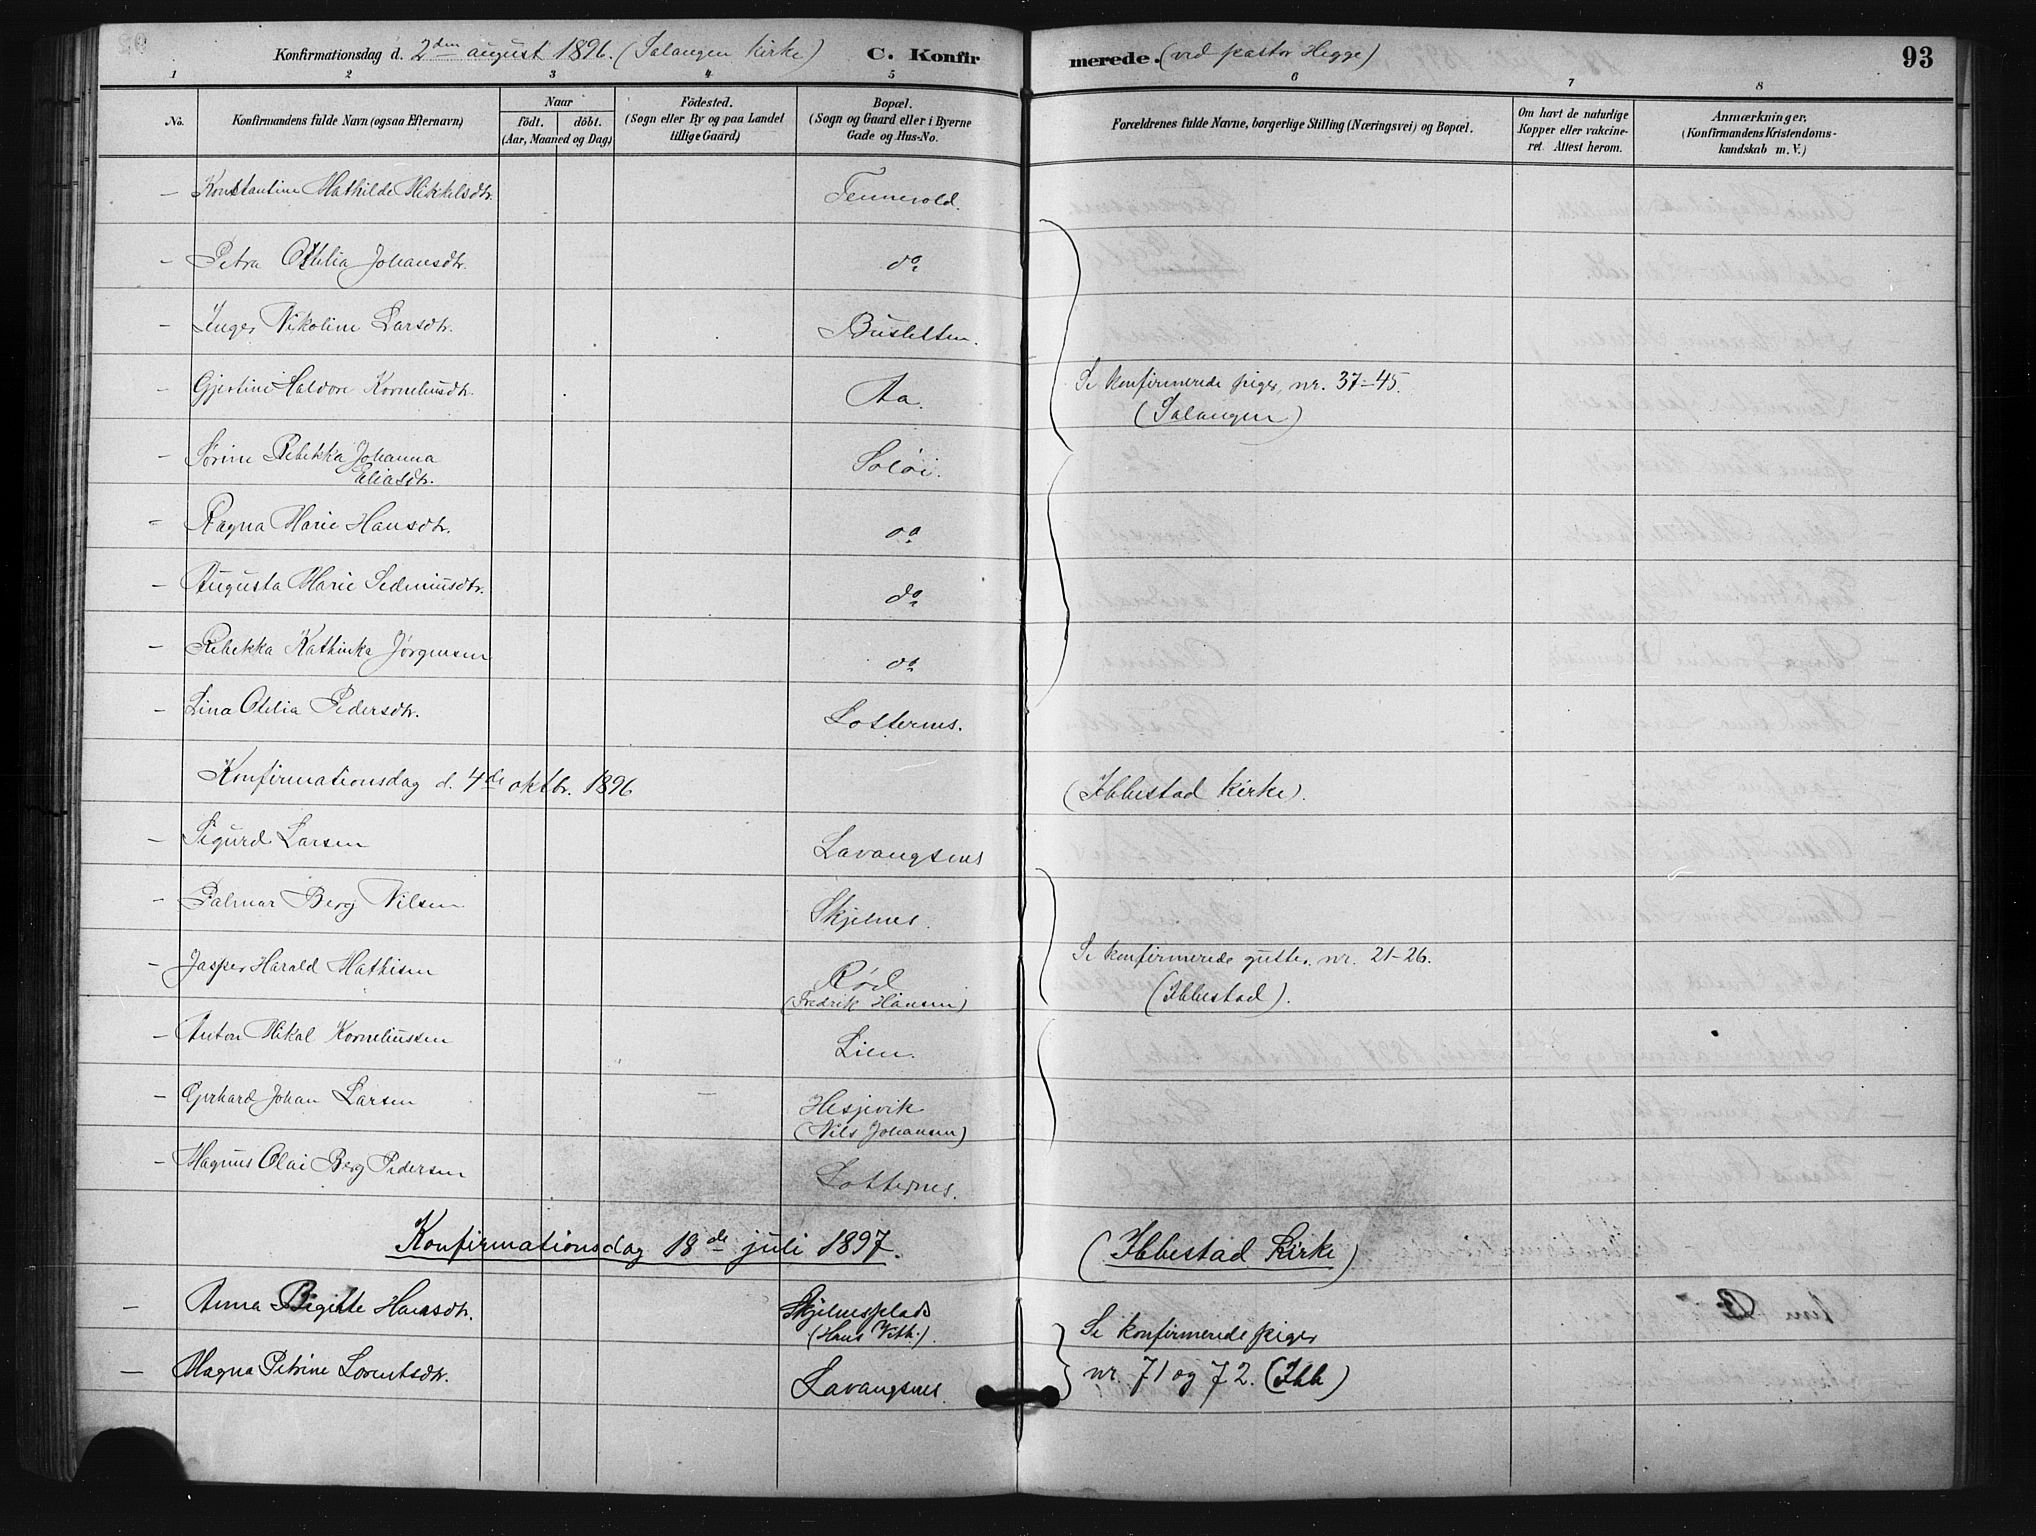 Konfirmationsdag d. 2den august 1896. (Salangen kirke) C. Konfirmerede. (ved pastor Hegge) 93
1 2 3 4 5 6 7 8
No.
Konfirmandens fulde Navn (ogsaa Efternavn)
Naar
födt. döbt.
(Aar, Maaned og Dag)
Födested.
(Sogn eller By og paa Landet
tillige Gaard)
Bopæl.
(Sogn og Gaard eller i Byerne
Gade og Hus-No.
Forældrenes fulde Navne, borgerlige Stilling (Næringsvei) og Bopæl.
Om havt de naturlige
Kopper eller vakcine-
ret. Attest herom.
Anmærkninger.
(Konfirmandens Kristendoms-
kundskab m. V.)
– Konstantine Mathilde Mikkelsdtr. Tennevold.
– Petra Othilia Johansdtr. do.
– Inger Nikoline Larsdtr. Busletten.
– Gjertine Haldore Korneliusdtr. Aa. Se konfirmerede piger, nr. 37–45.
(Salangen)
– Sørine Rebekka Johanna
Eliasdtr. Soløi.
– Ragna Marie Hansdtr. do
– Augusta Marie Sedeniusdtr. do.
– Rebekka Kathinka Jørgensen do
– Lina Otelia Pedersdtr. Lotternes.
Konfirmationsdag d. 4de oktbr. 1896 (Ibbestad kirke).
– Sigurd Larsen Lavangsnes
– Palmar Berg Nilsen Skjelnes.
– Jasper Harald Mathisen Rød
(Fredrik Hansen)
Se konfirmerede gutter, nr. 21–26.
(Ibbestad).
– Anton Mikal Korneliussen Lien.
– Gerhard Johan Larsen Hesjevik
(Nils Johansen)
– Magnus Olai Berg Pedersen Lotternes.
Konfirmationsdag 18de juli 1897. (Ibbestad Kirke)
– Anna Birgitte Hansdtr. Skjelnesplads
(Hans Vith.).
Se konfirmerede piger
– Magna Petrine Lorentsdtr. Lavangsnes. nr. 71 og 72. (Ibb)